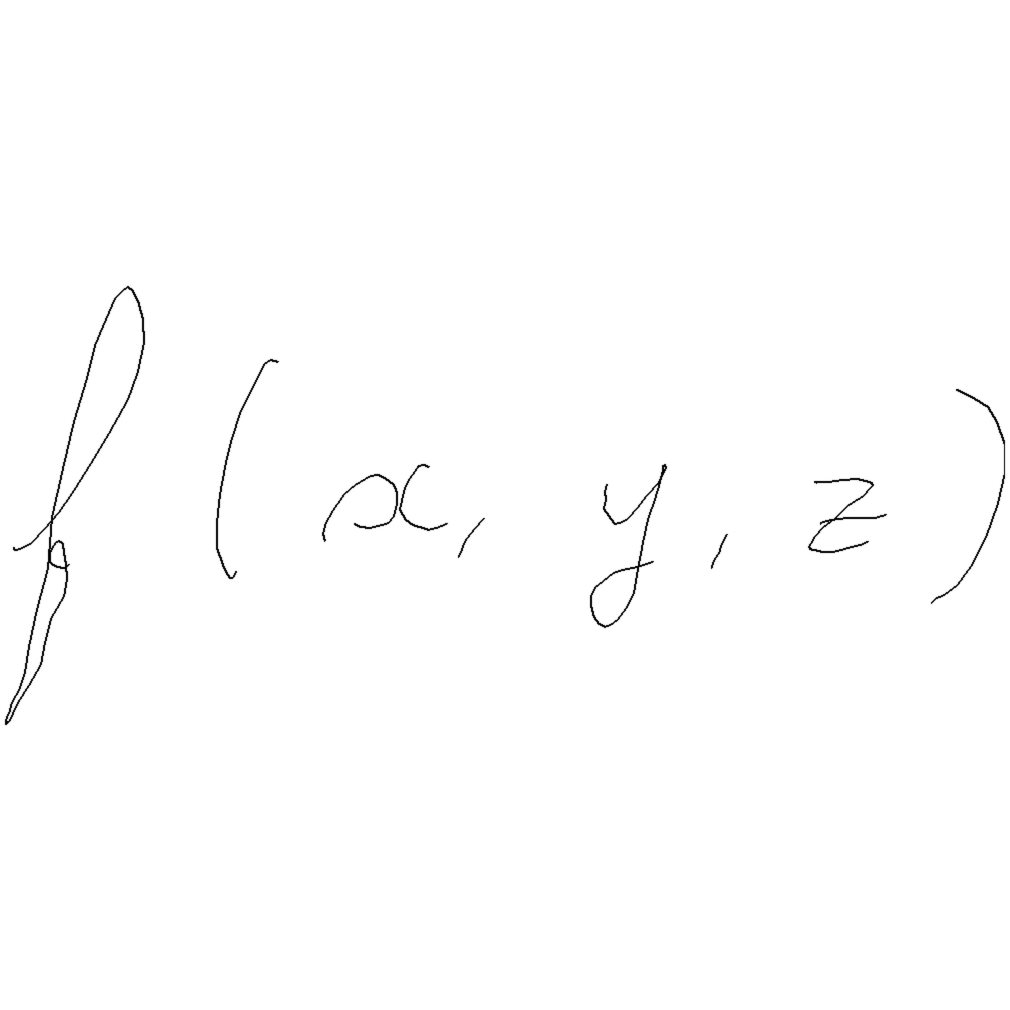 f(x, y, z)